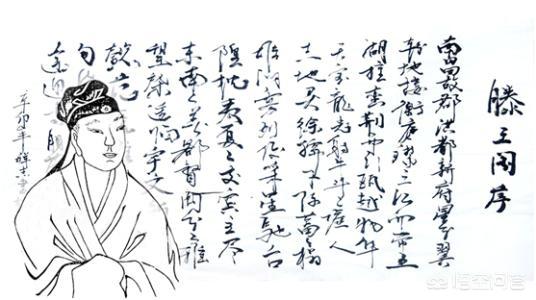 滕王阁序
南昌故郡洪都新府星分翼
轸地接衡庐襟三江而带五
湖控蛮荆而引瓯越物华
天宝龙光射牛斗之墟人
杰地灵徐孺下陈蕃榻
雄州雾列俊采星驰台
隍枕夷夏之交宾主尽
东南之美都督阎公之雅
望棨遥临宇文
懿范
旬
辛卯年
悟空问答